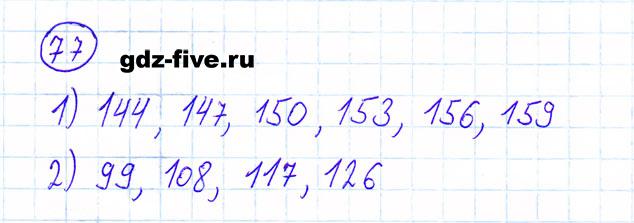 77
gdz-five.ru
1) 144, 147, 150, 153, 156, 159
2) 99, 108, 117, 126